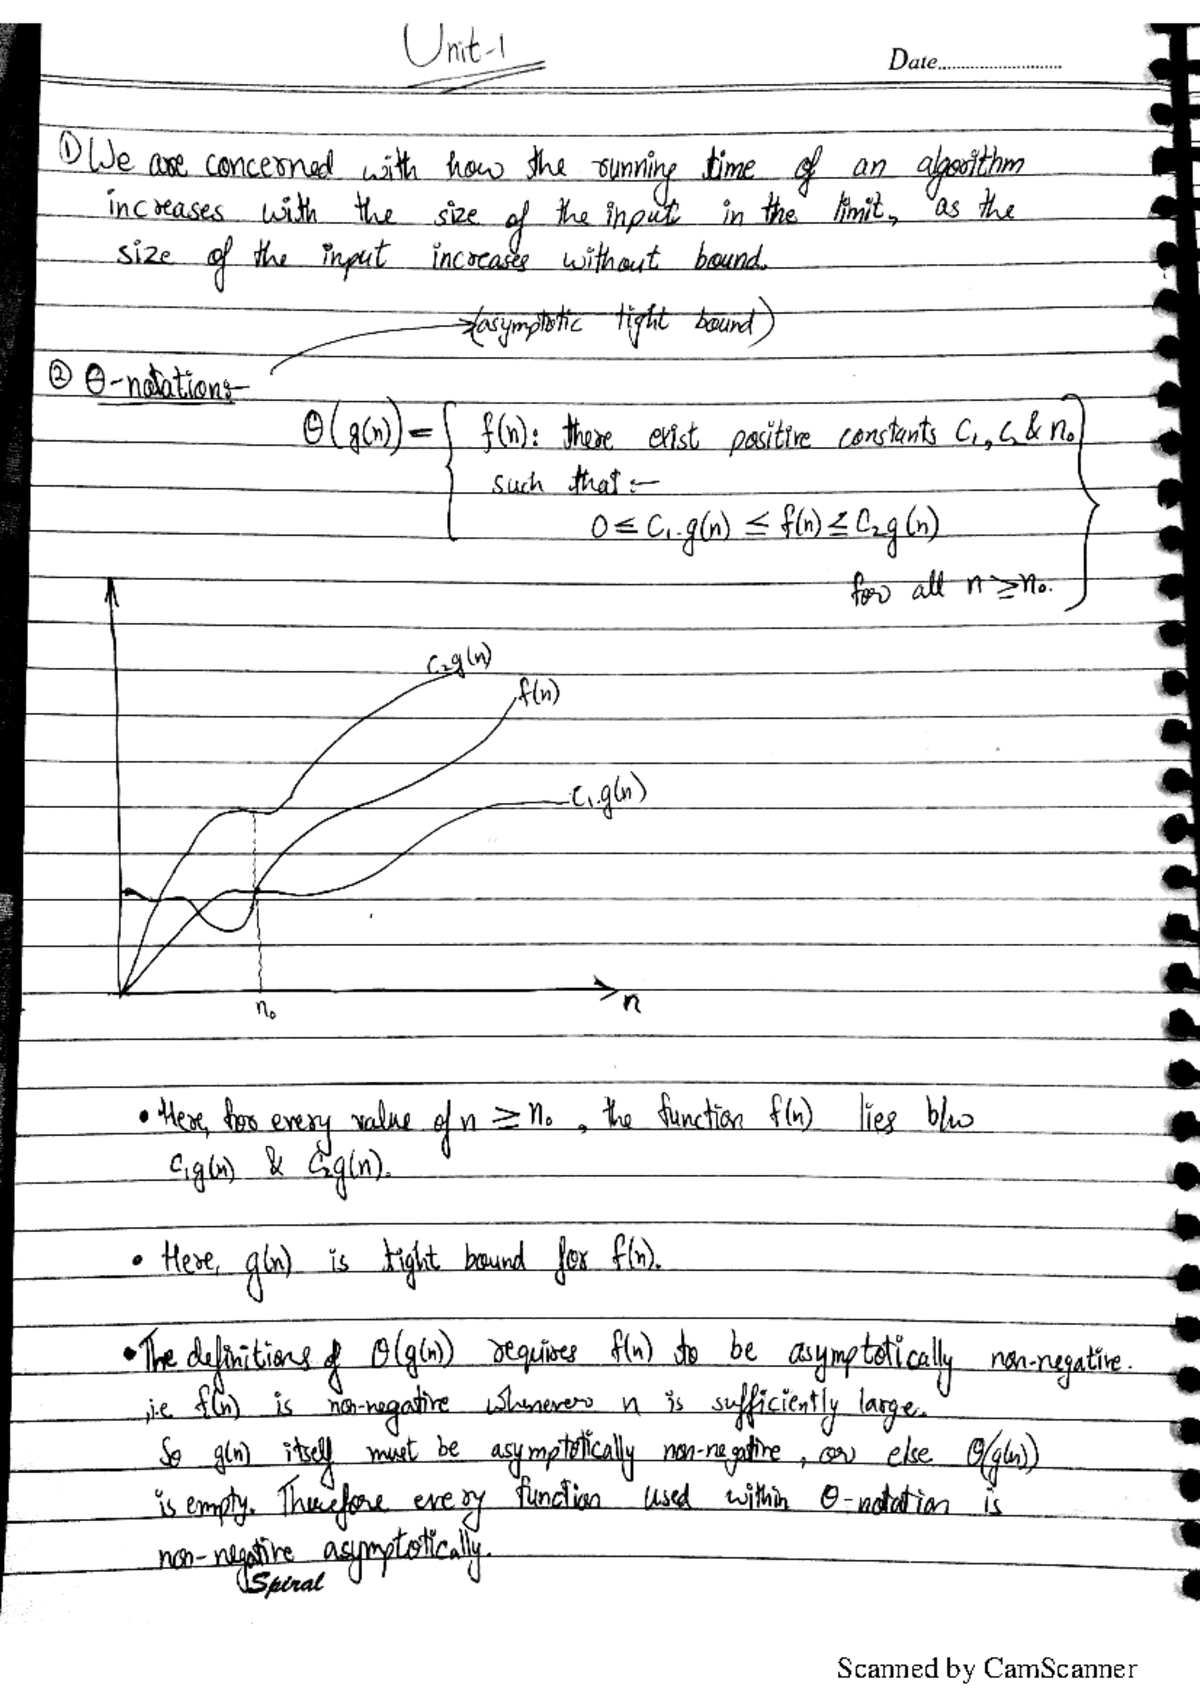 Unit-1
Date..............................
① We are concerned with how the running time of an algorithm
increases with the size of the input in the limit, as the
size of the input increases without bound.
(asymptotic tight bound)
② Θ-notations-
Θ(g(n)) = { f(n): there exist positive constants C₁, C₂ & n₀
such that :-
0 ≤ C₁.g(n) ≤ f(n) ≤ C₂g(n)
for all n ≥ n₀. }
C₂g(n)
f(n)
C₁.g(n)
n
n₀
• Here, for every value of n ≥ n₀, the function f(n) lies b/w
C₁g(n) & C₂g(n).
• Here, g(n) is tight bound for f(n).
• The definitions of Θ(g(n)) requires f(n) to be asymptotically non-negative.
i.e f(n) is non-negative whenever n is sufficiently large.
So g(n) itself must be asymptotically non-negative, or else Θ(g(n))
is empty. Therefore every function used within Θ-notation is
non-negative asymptotically.
Spiral
Scanned by CamScanner